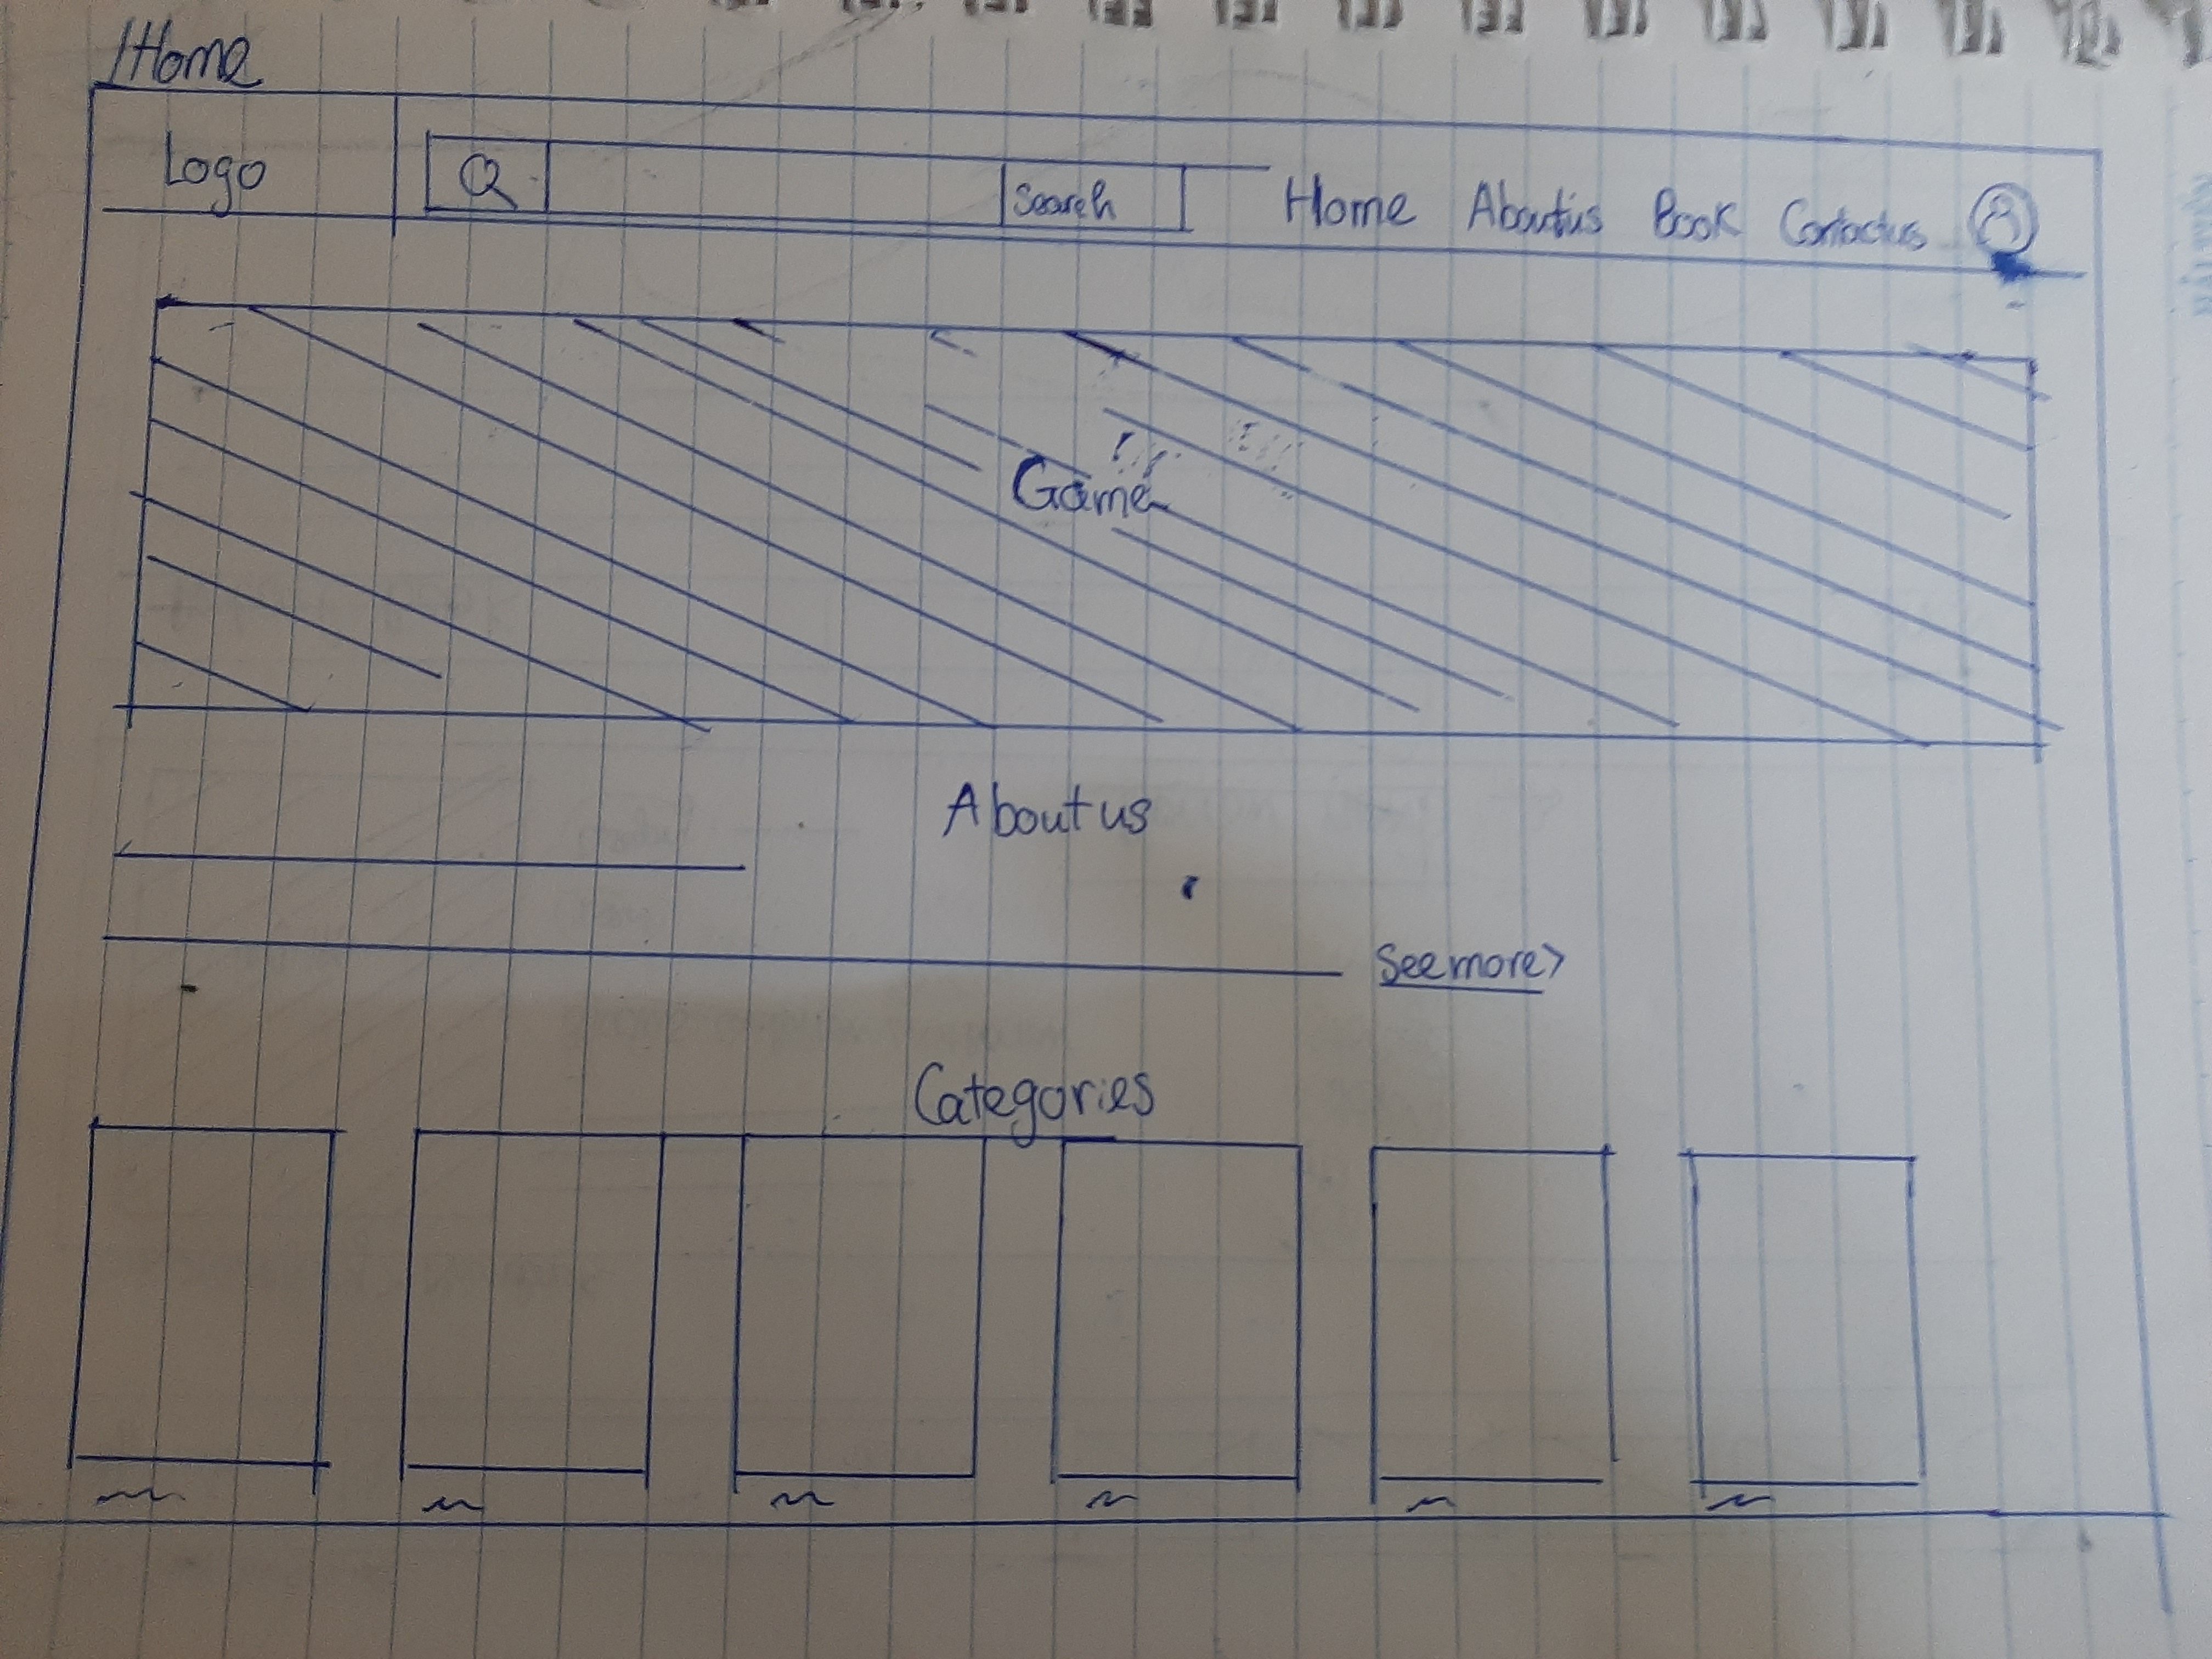 Home
Logo
Search
Home Aboutus Book Contactus
Game
About us
See more>
Categories